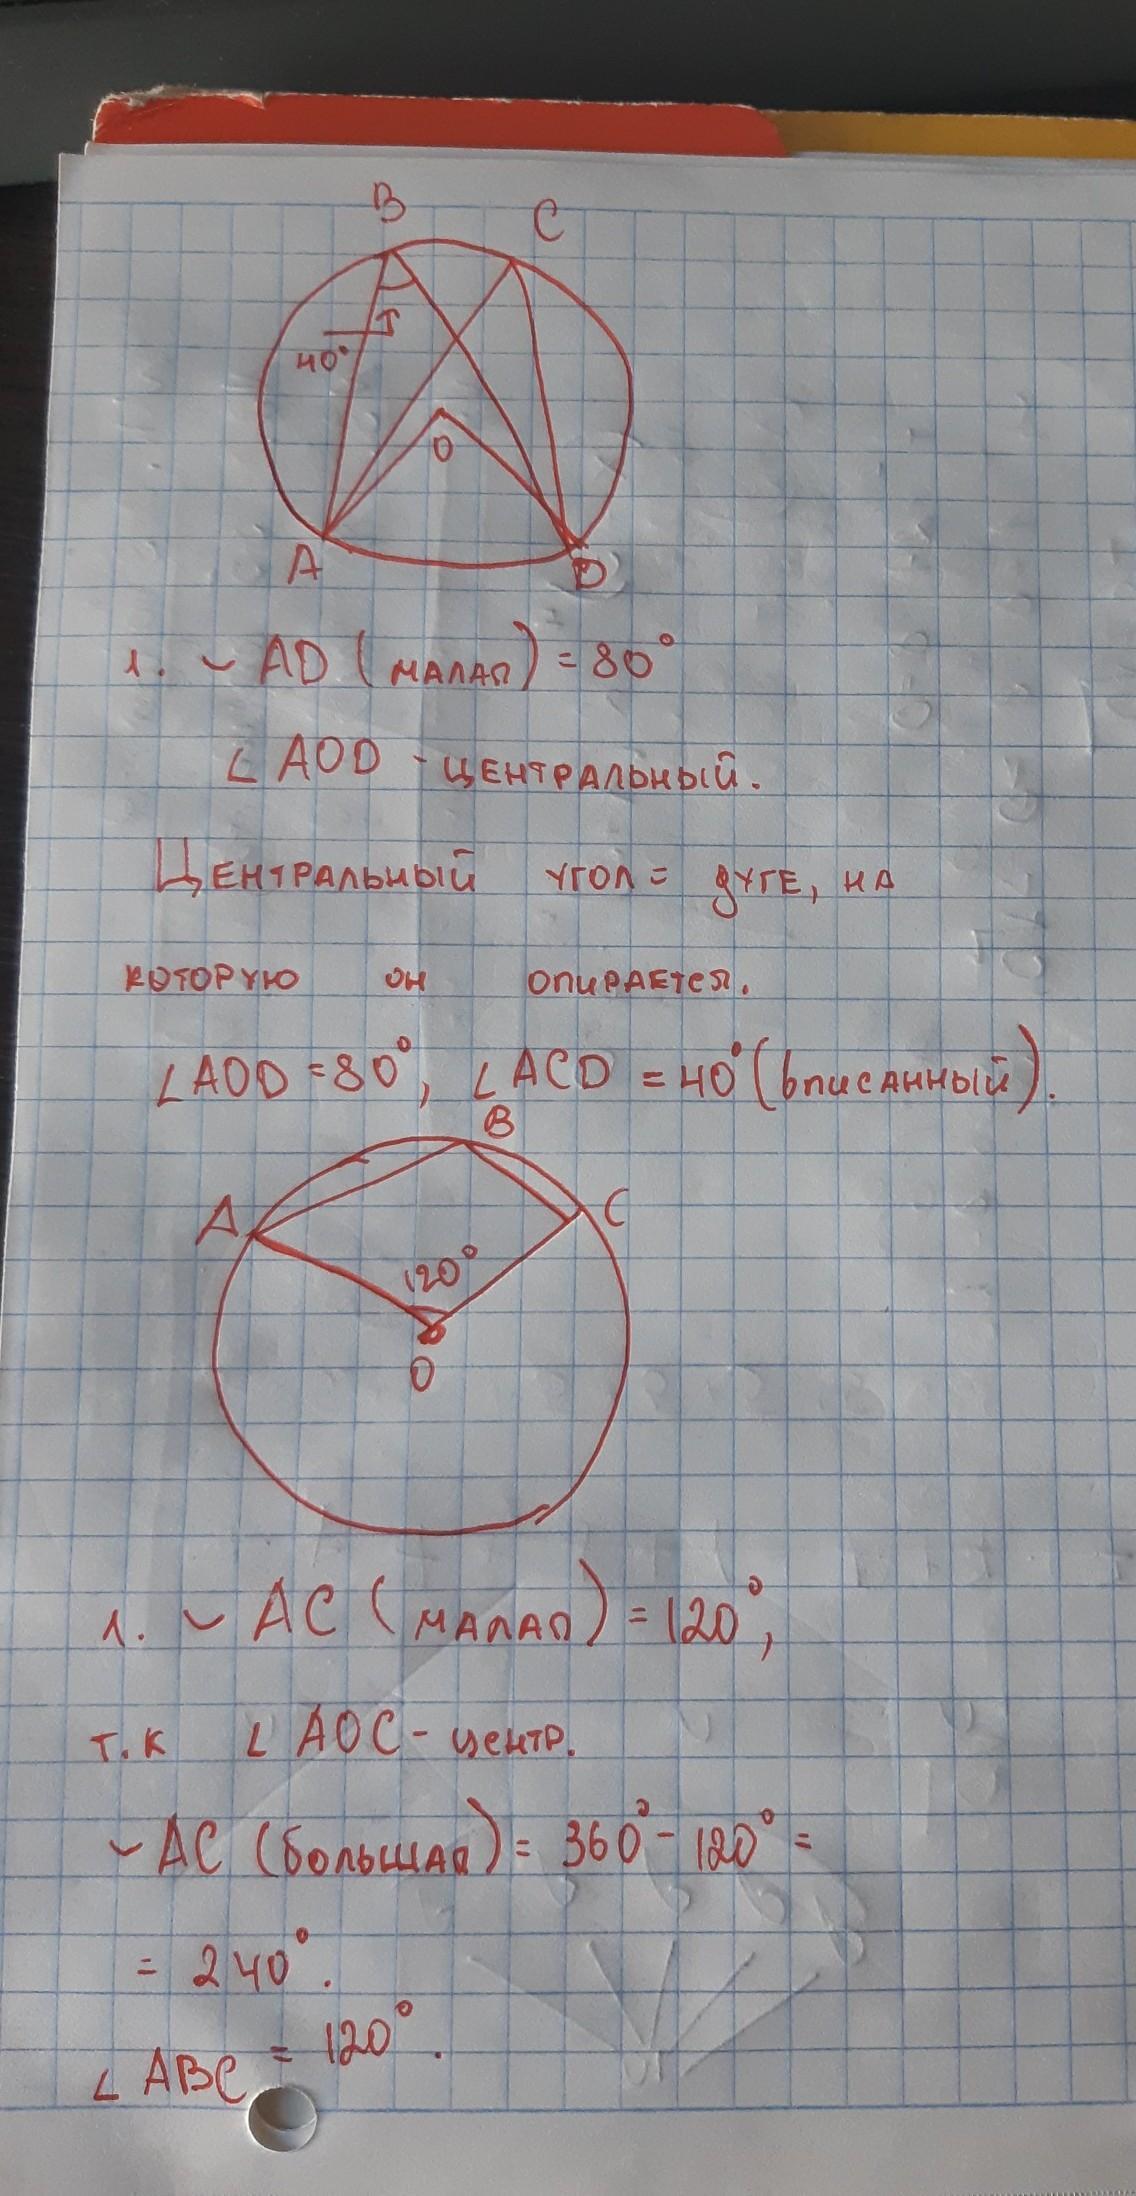 B
C
40°
O
A
D
1. ◡ AD (малая) = 80°
∠ AOD - центральный.
Центральный угол = дуге, на
которую он опирается.
∠AOD = 80°, ∠ACD = 40° (вписанный).
B
A
C
120°
O
1. ◡ AC (малая) = 120°,
т.к ∠ AOC - центр.
◡ AC (большая) = 360° - 120° =
= 240°.
∠ ABC = 120°.